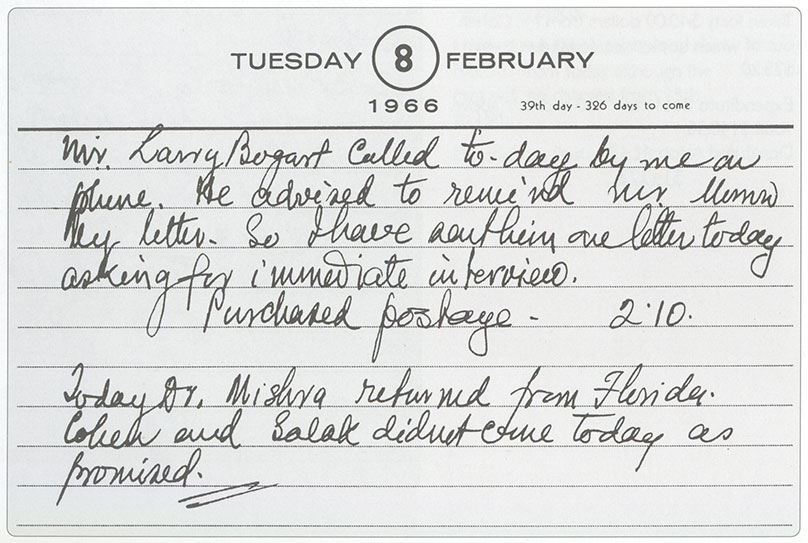 TUESDAY 8 FEBRUARY
1966 39th day - 326 days to come
Mr. Larry Bogart called to-day by me on
phone. He advised to remind Mr.
by letter. So I have sent him one letter today
asking for immediate interview.
Purchased postage - 2.10.
Today Dr. Mishra returned from Florida.
Cohen and did not come today as
promised.